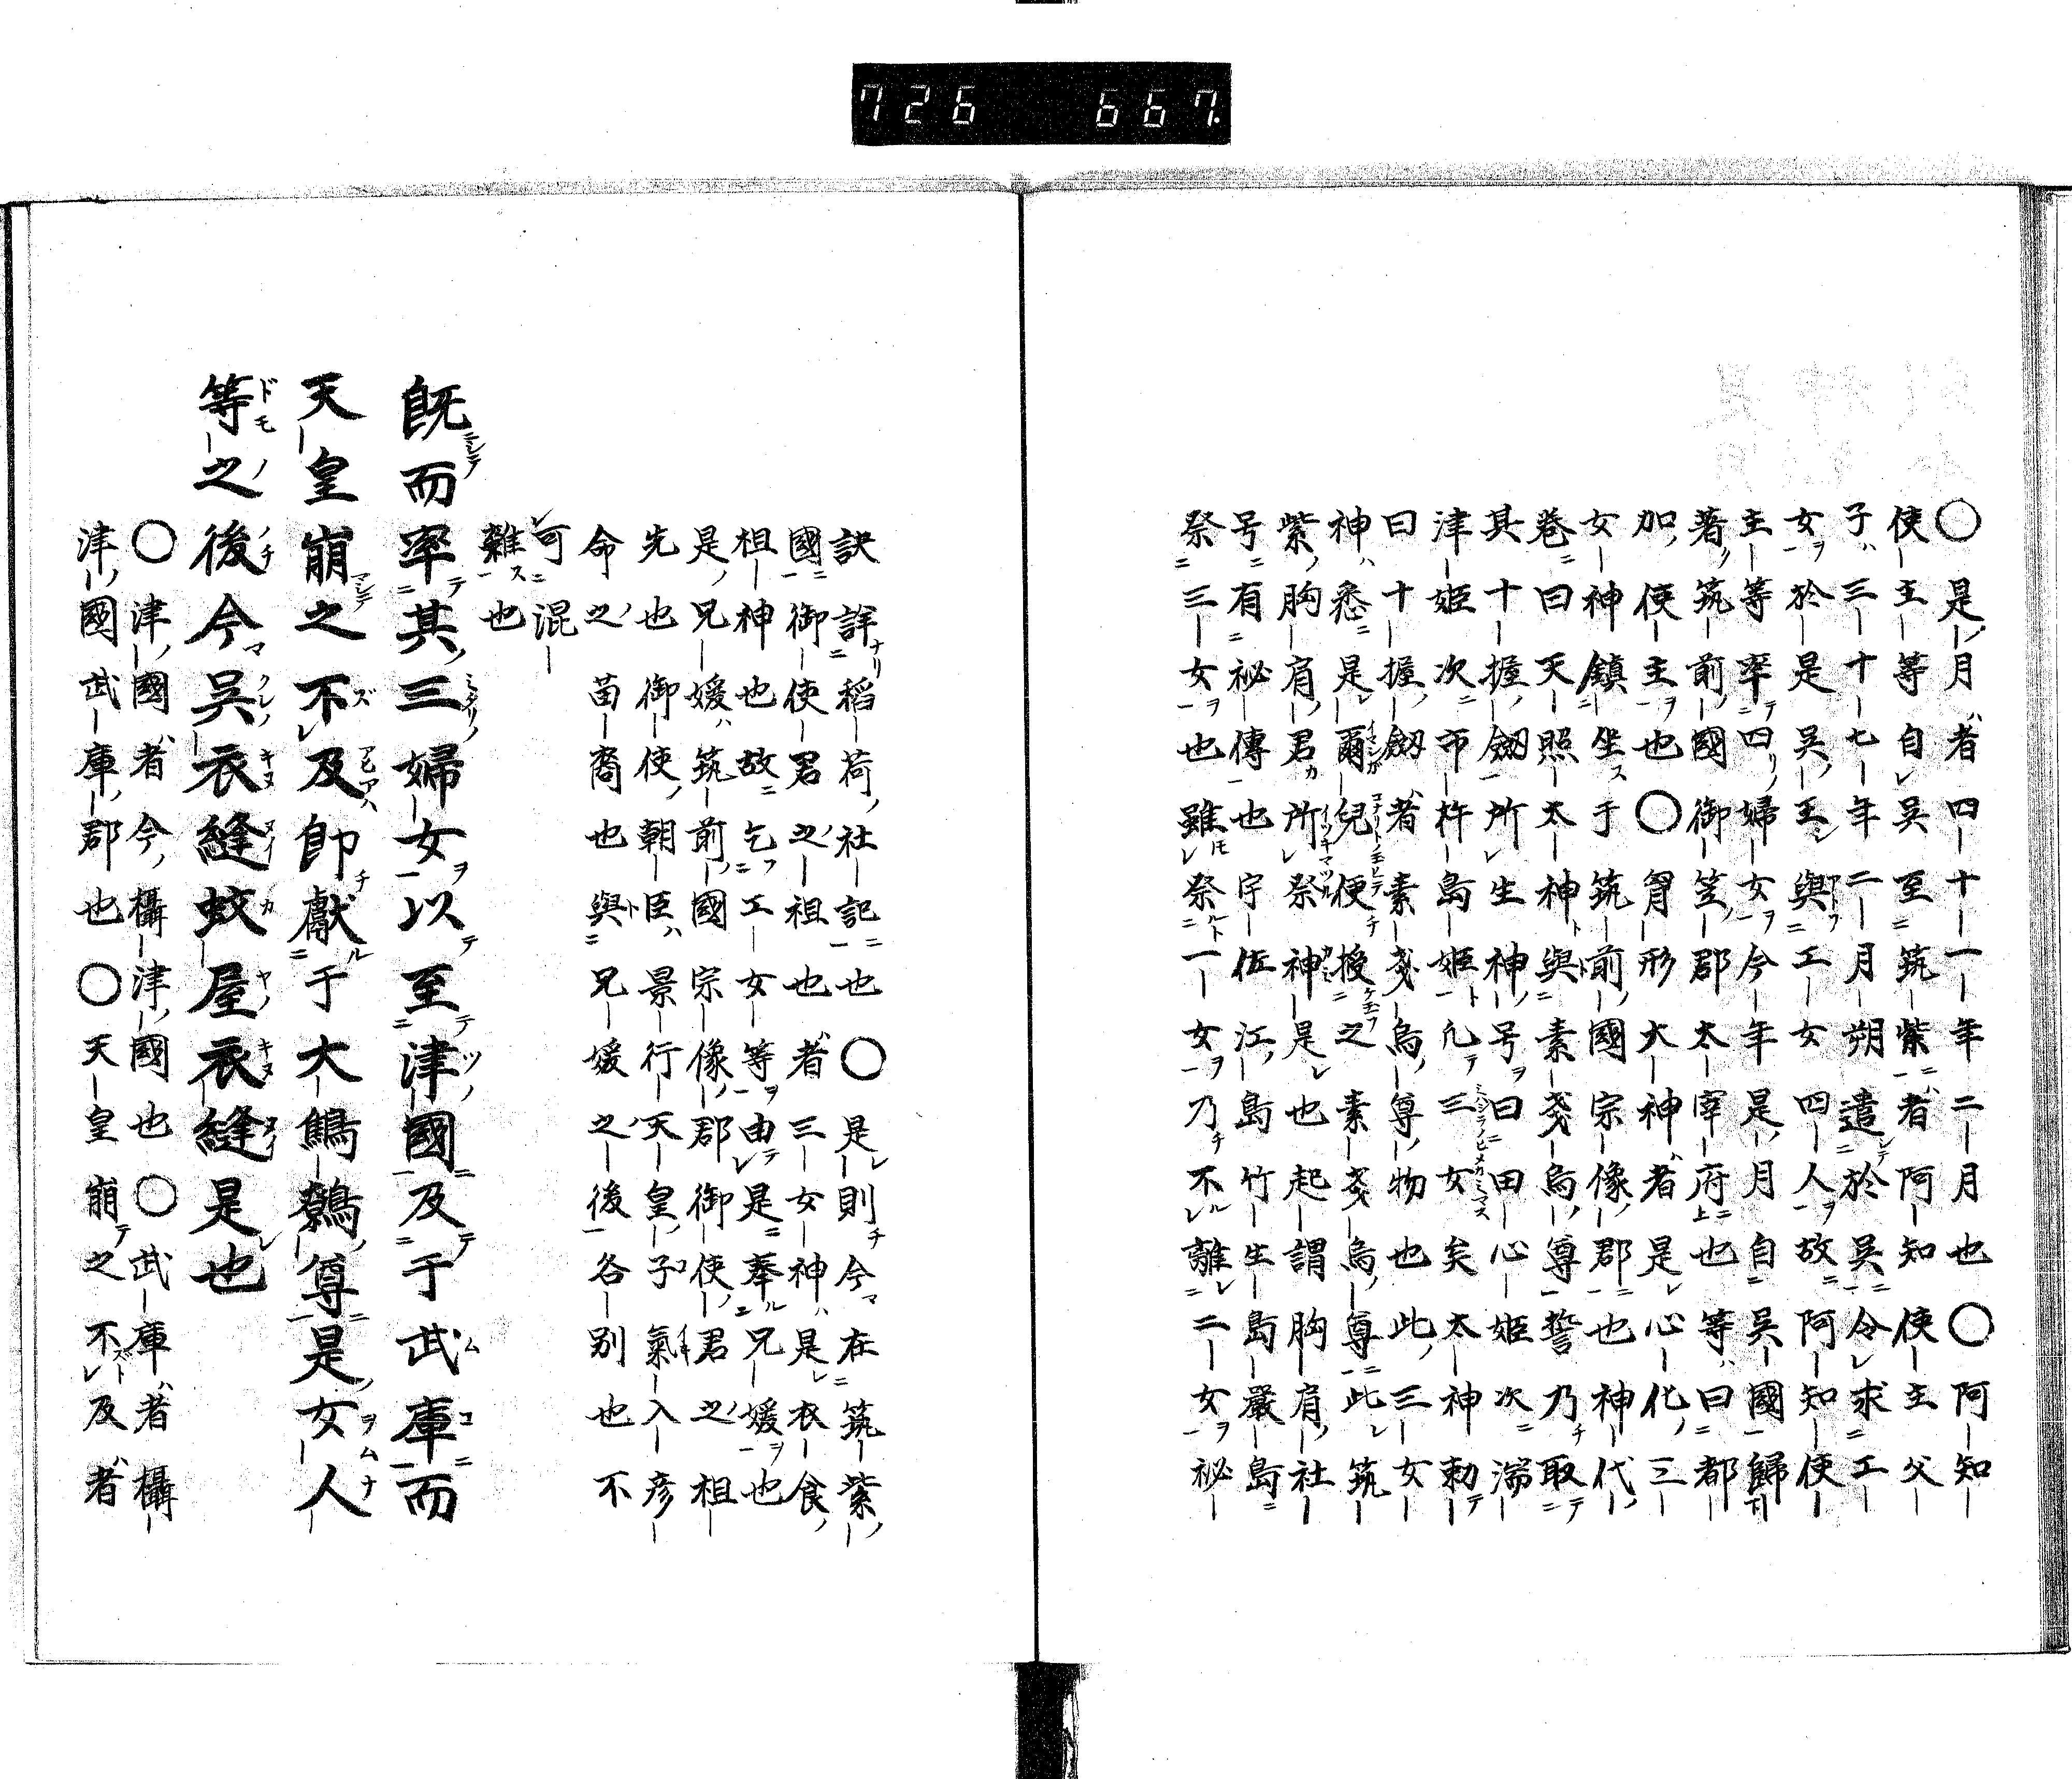 726 667.
○是月者四十一年二月也○阿知
使主等自吳至筑紫者阿知使主父
子三十七年二月朔遣於吳令求工
女於是吳王與工女四人故阿知使
主等率四婦女今年是月自吳國歸
著筑前國御笠郡太宰府也等曰都
加使主也○胷形大神者是心化三
女神鎮坐于筑前國宗像郡也神代
卷曰天照太神與素戔烏尊誓乃取
其十握劔所生神号曰田心姬次湍
津姬次市杵島姬凢三女矣太神勅
曰十握劔者素戔烏尊物也此三女
神悉是爾兒便授之素戔烏尊此筑
紫胸肩君所祭神是也起謂胸肩社
号有祕傳也宇佐江島竹生島嚴島
祭三女也雖祭一女乃不離二女祕
訣詳稻荷社記也○是則今在筑紫
國御使君之祖也者三女神是衣食
祖神也故乞工女等由是奉兄媛也
是兄媛筑前國宗像郡御使君之祖
先也御使朝臣景行天皇子氣入彦
命之苗裔也與兄媛之後各别也不
可混
雜也
既而率其三婦女以至津國及于武庫而
天皇崩之不及即獻于大鷦鷯尊是女人
等之後今吳衣縫蚊屋衣縫是也
○津國者今攝津國也○武庫者攝
津國武庫郡也○天皇崩之不及者